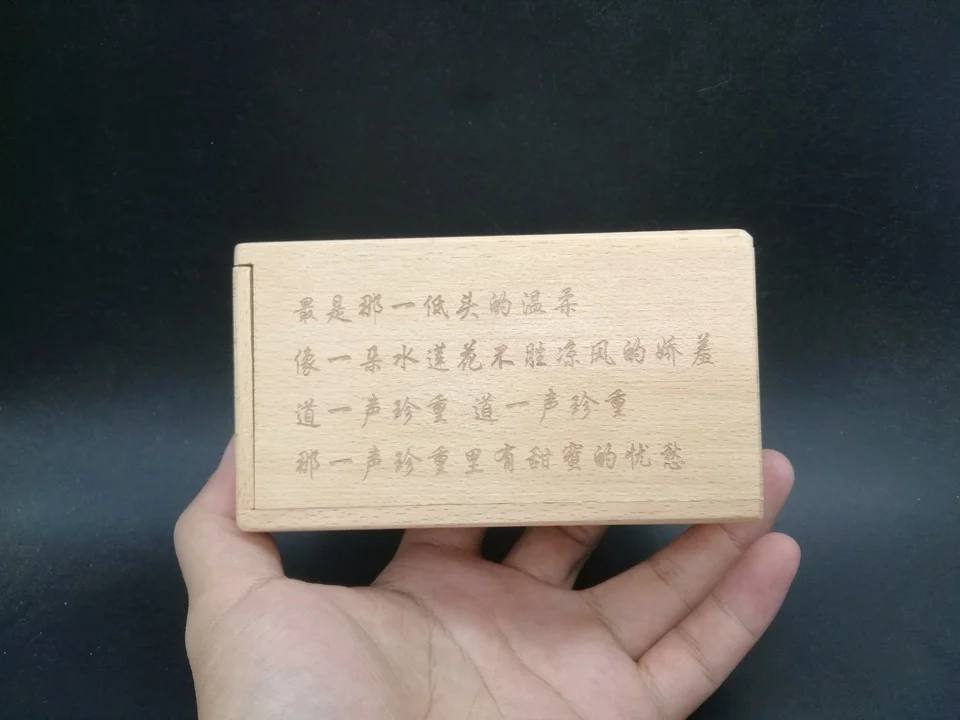 最是那一低头的温柔
像一朵水莲花不胜凉风的娇羞
道一声珍重 道一声珍重
那一声珍重里有甜蜜的忧愁